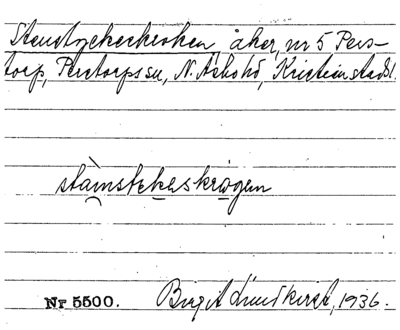 Stenstyckeskroken, åker, nr 5 Pers-
torp, Perstorps sn, N. Åsbo hd, Kristianstads l.
stàinstekaskrògen
Nr 5500. Birgit Lundkvist, 1936.